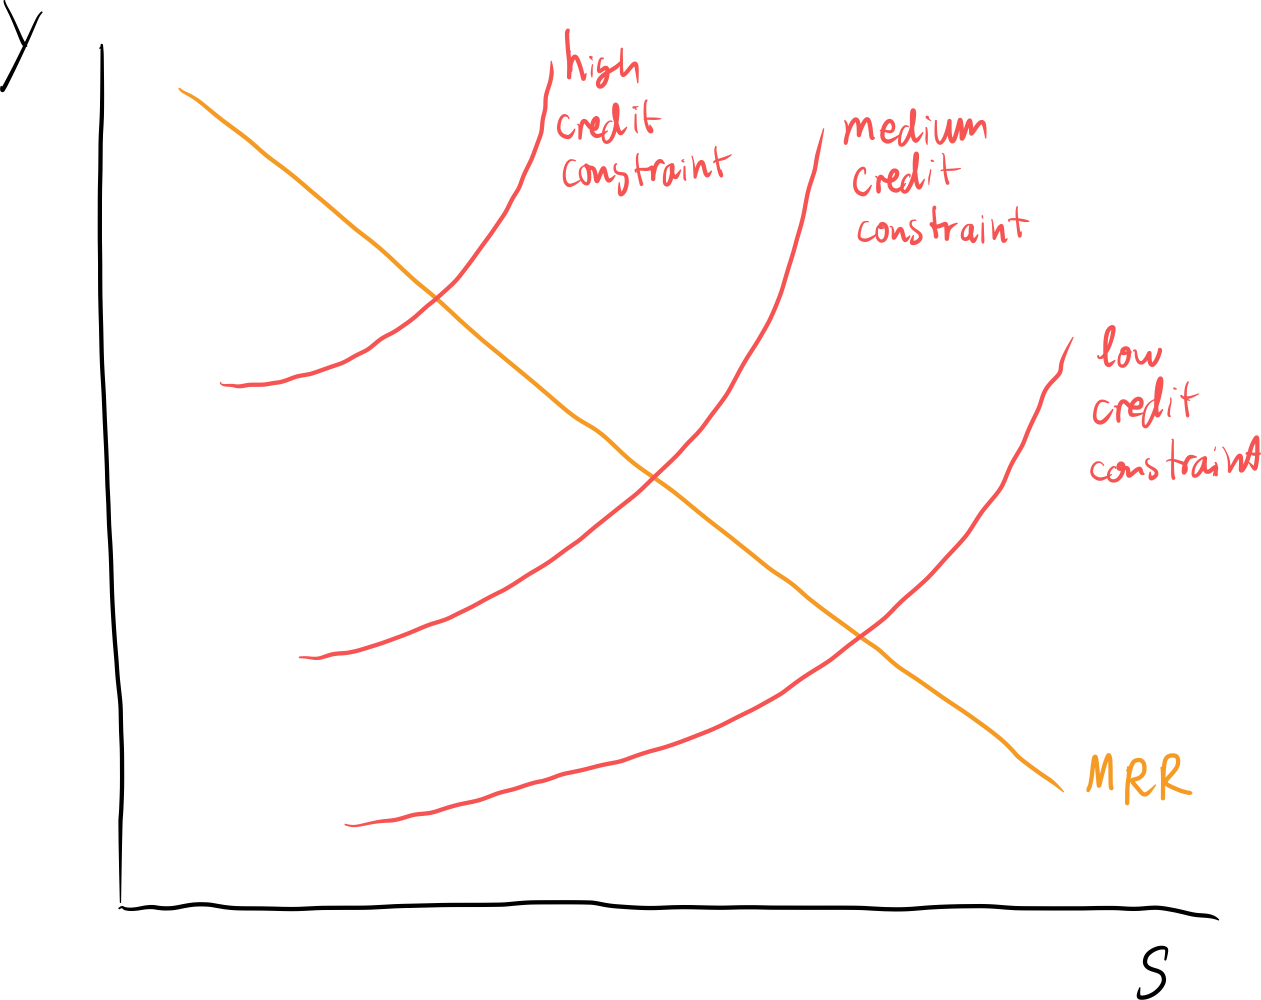 y
high
credit
constraint
medium
credit
constraint
low
credit
constraint
MRR
S